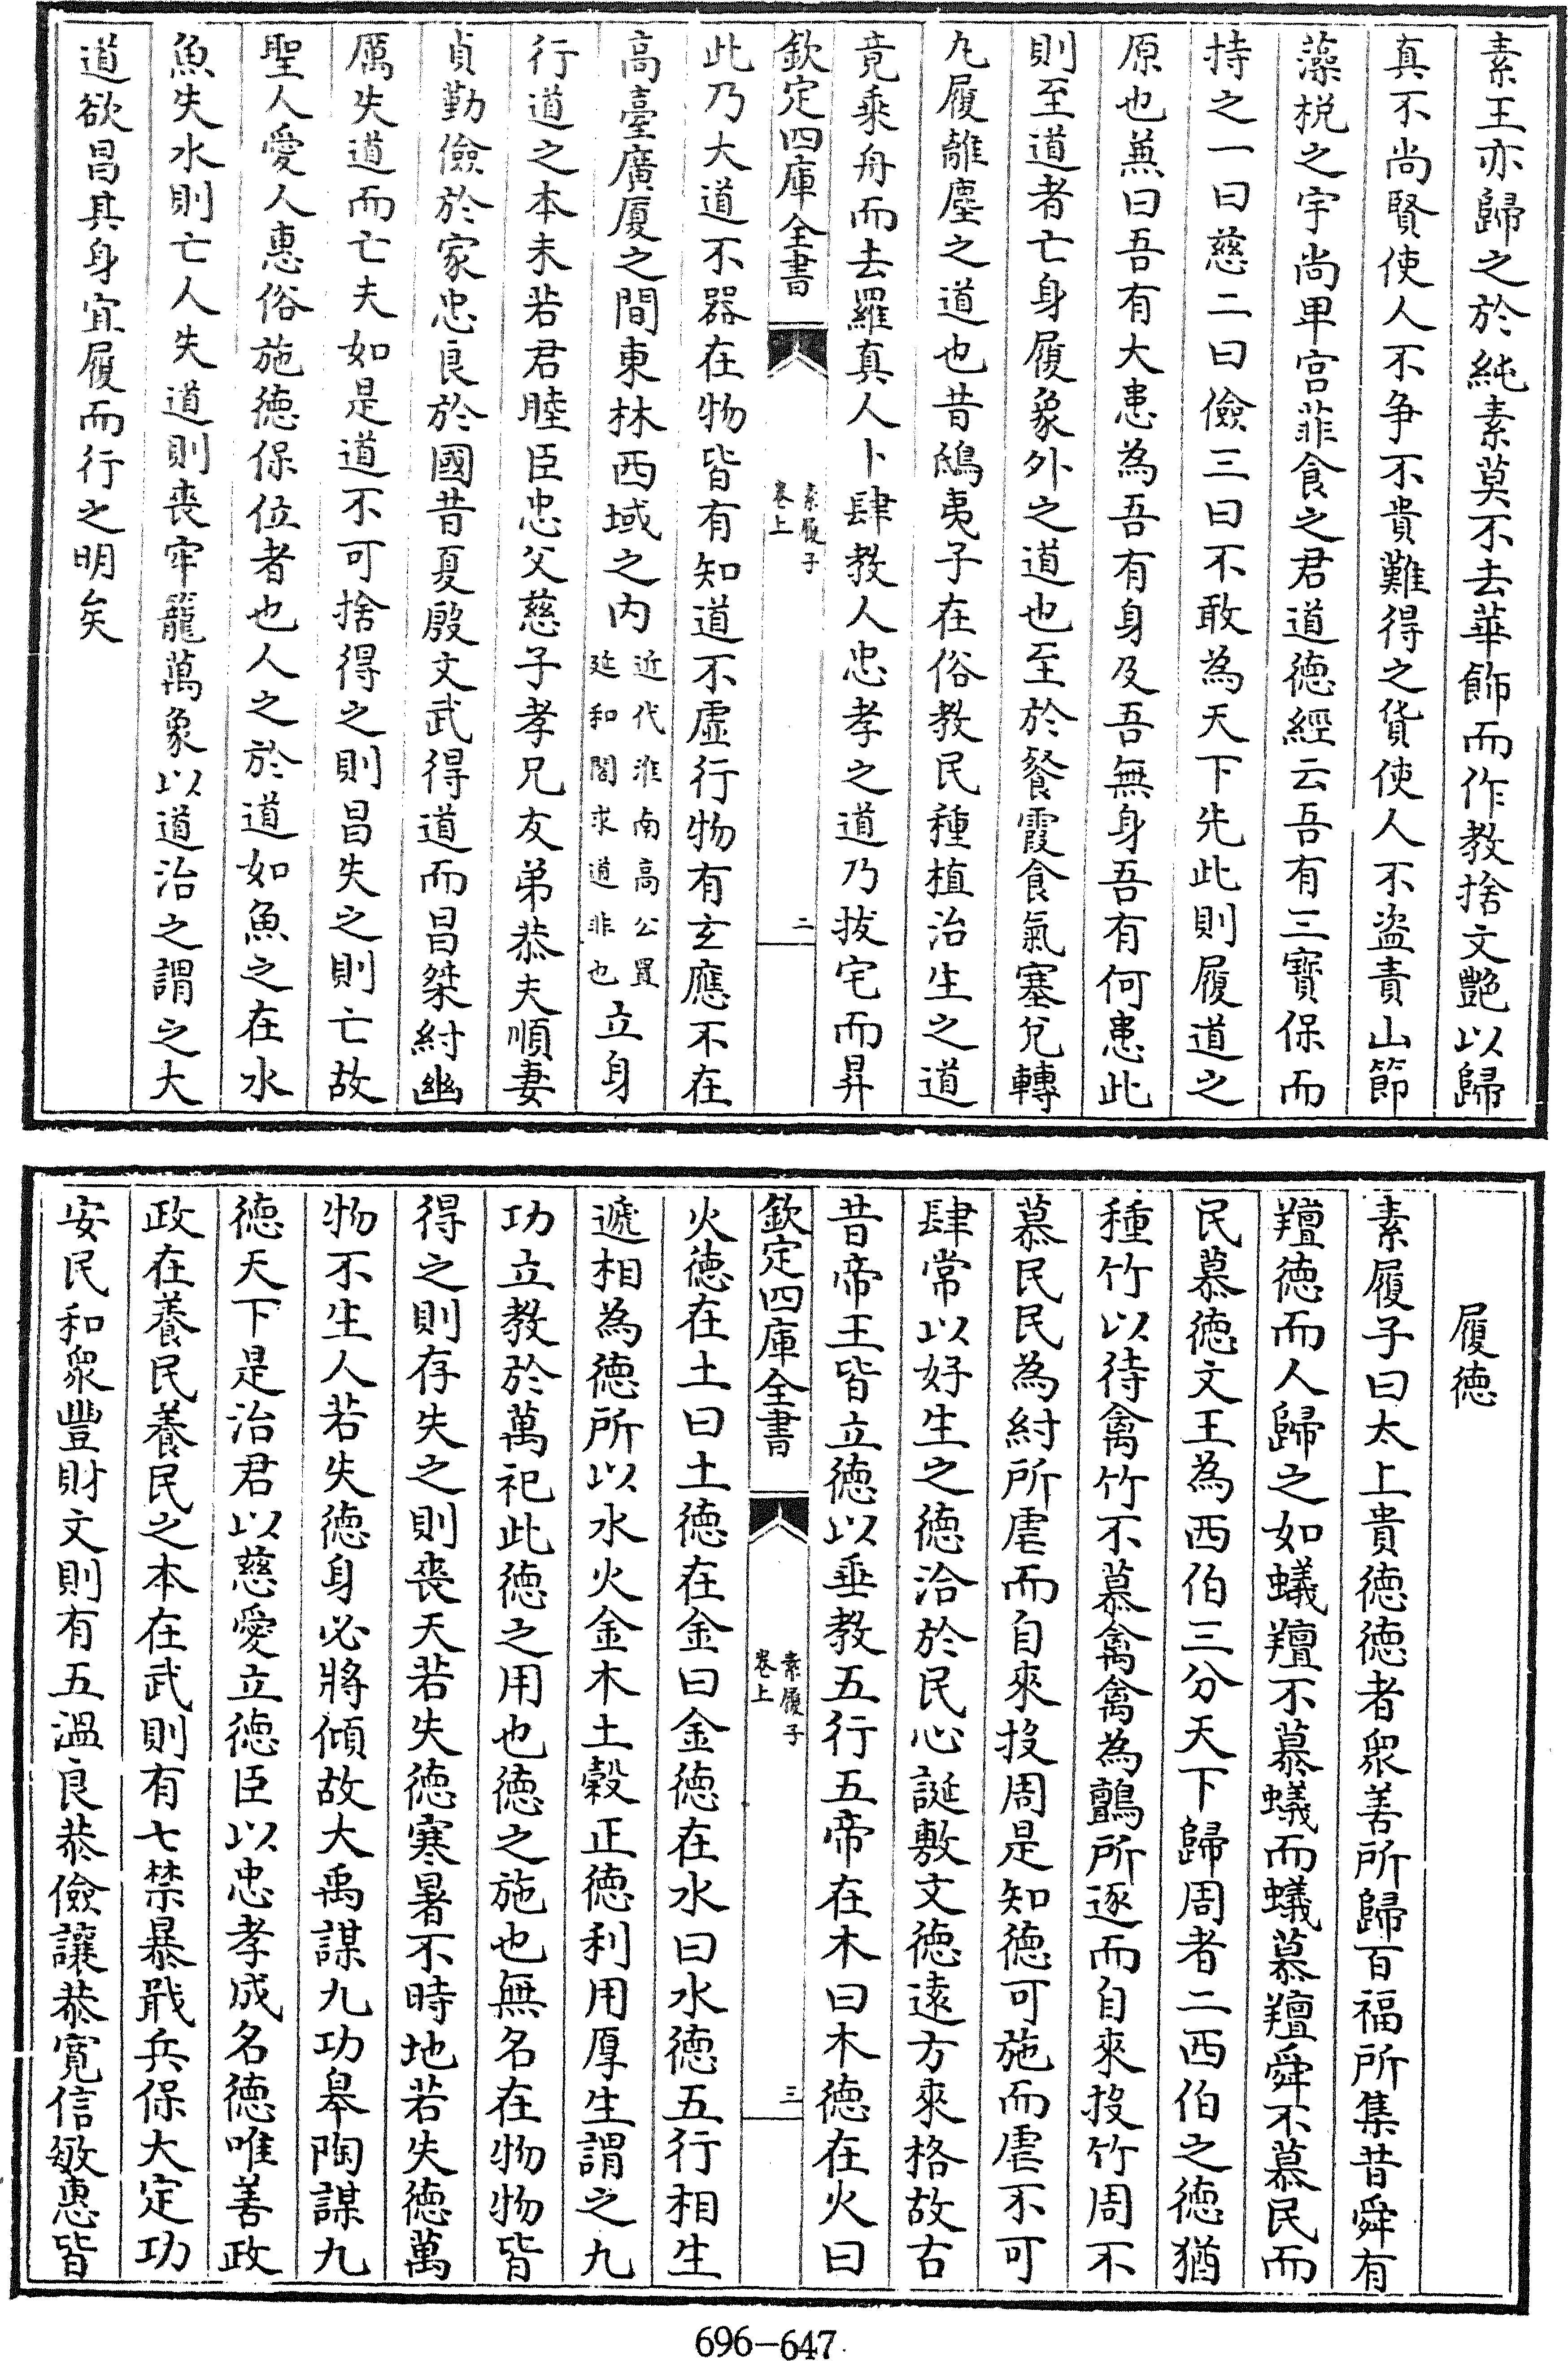 素王亦歸之於純素莫不去華飾而作教捨文艷以歸
真不尚賢使人不争不貴難得之貨使人不盜責山節
藻棁之宇尚卑宫菲食之君道徳經云吾有三寳保而
持之一曰慈二曰儉三曰不敢為天下先此則履道之
原也兼曰吾有大患為吾有身及吾無身吾有何患此
則至道者亡身履象外之道也至於餐霞食氣塞兌轉
丸履離塵之道也昔鴟夷子在俗教民種植治生之道
竟乘舟而去羅真人卜肆教人忠孝之道乃拔宅而昇
欽定四庫全書
素履子
卷上
二
此乃大道不器在物皆有知道不虚行物有玄應不在
高臺廣厦之間東林西域之内近代淮南髙公置延和閣求道非也立身
行道之本未若君睦臣忠父慈子孝兄友弟恭夫順妻
貞勤儉於家忠良於國昔夏殷文武得道而昌桀紂幽
厲失道而亡夫如是道不可捨得之則昌失之則亡故
聖人愛人惠俗施徳保位者也人之於道如魚之在水
魚失水則亡人失道則喪牢籠萬象以道治之謂之大
道欲昌其身宜履而行之明矣
履徳
素履子曰太上貴徳徳者衆善所歸百福所集昔舜有
羶徳而人歸之如蟻羶不慕蟻而蟻慕羶舜不慕民而
民慕徳文王為西伯三分天下歸周者二西伯之徳猶
種竹以待禽竹不慕禽禽為鸇所逐而自來投竹周不
慕民民為紂所虐而自來投周是知徳可施而虐不可
肆常以好生之徳洽於民心誕敷文徳逺方來格故古
昔帝王皆立徳以垂教五行五帝在木曰木徳在火曰
欽定四庫全書
素履子
卷上
三
火徳在土曰土徳在金曰金徳在水曰水徳五行相生
遞相為徳所以水火金木土穀正徳利用厚生謂之九
功立教於萬祀此徳之用也徳之施也無名在物物皆
得之則存失之則喪天若失徳寒暑不時地若失徳萬
物不生人若失徳身必將傾故大禹謀九功臯陶謀九
徳天下是治君以慈愛立徳臣以忠孝成名徳唯善政
政在養民養民之本在武則有七禁暴戢兵保大定功
安民和衆豐財文則有五温良恭儉讓恭寛信敏惠皆
696-647